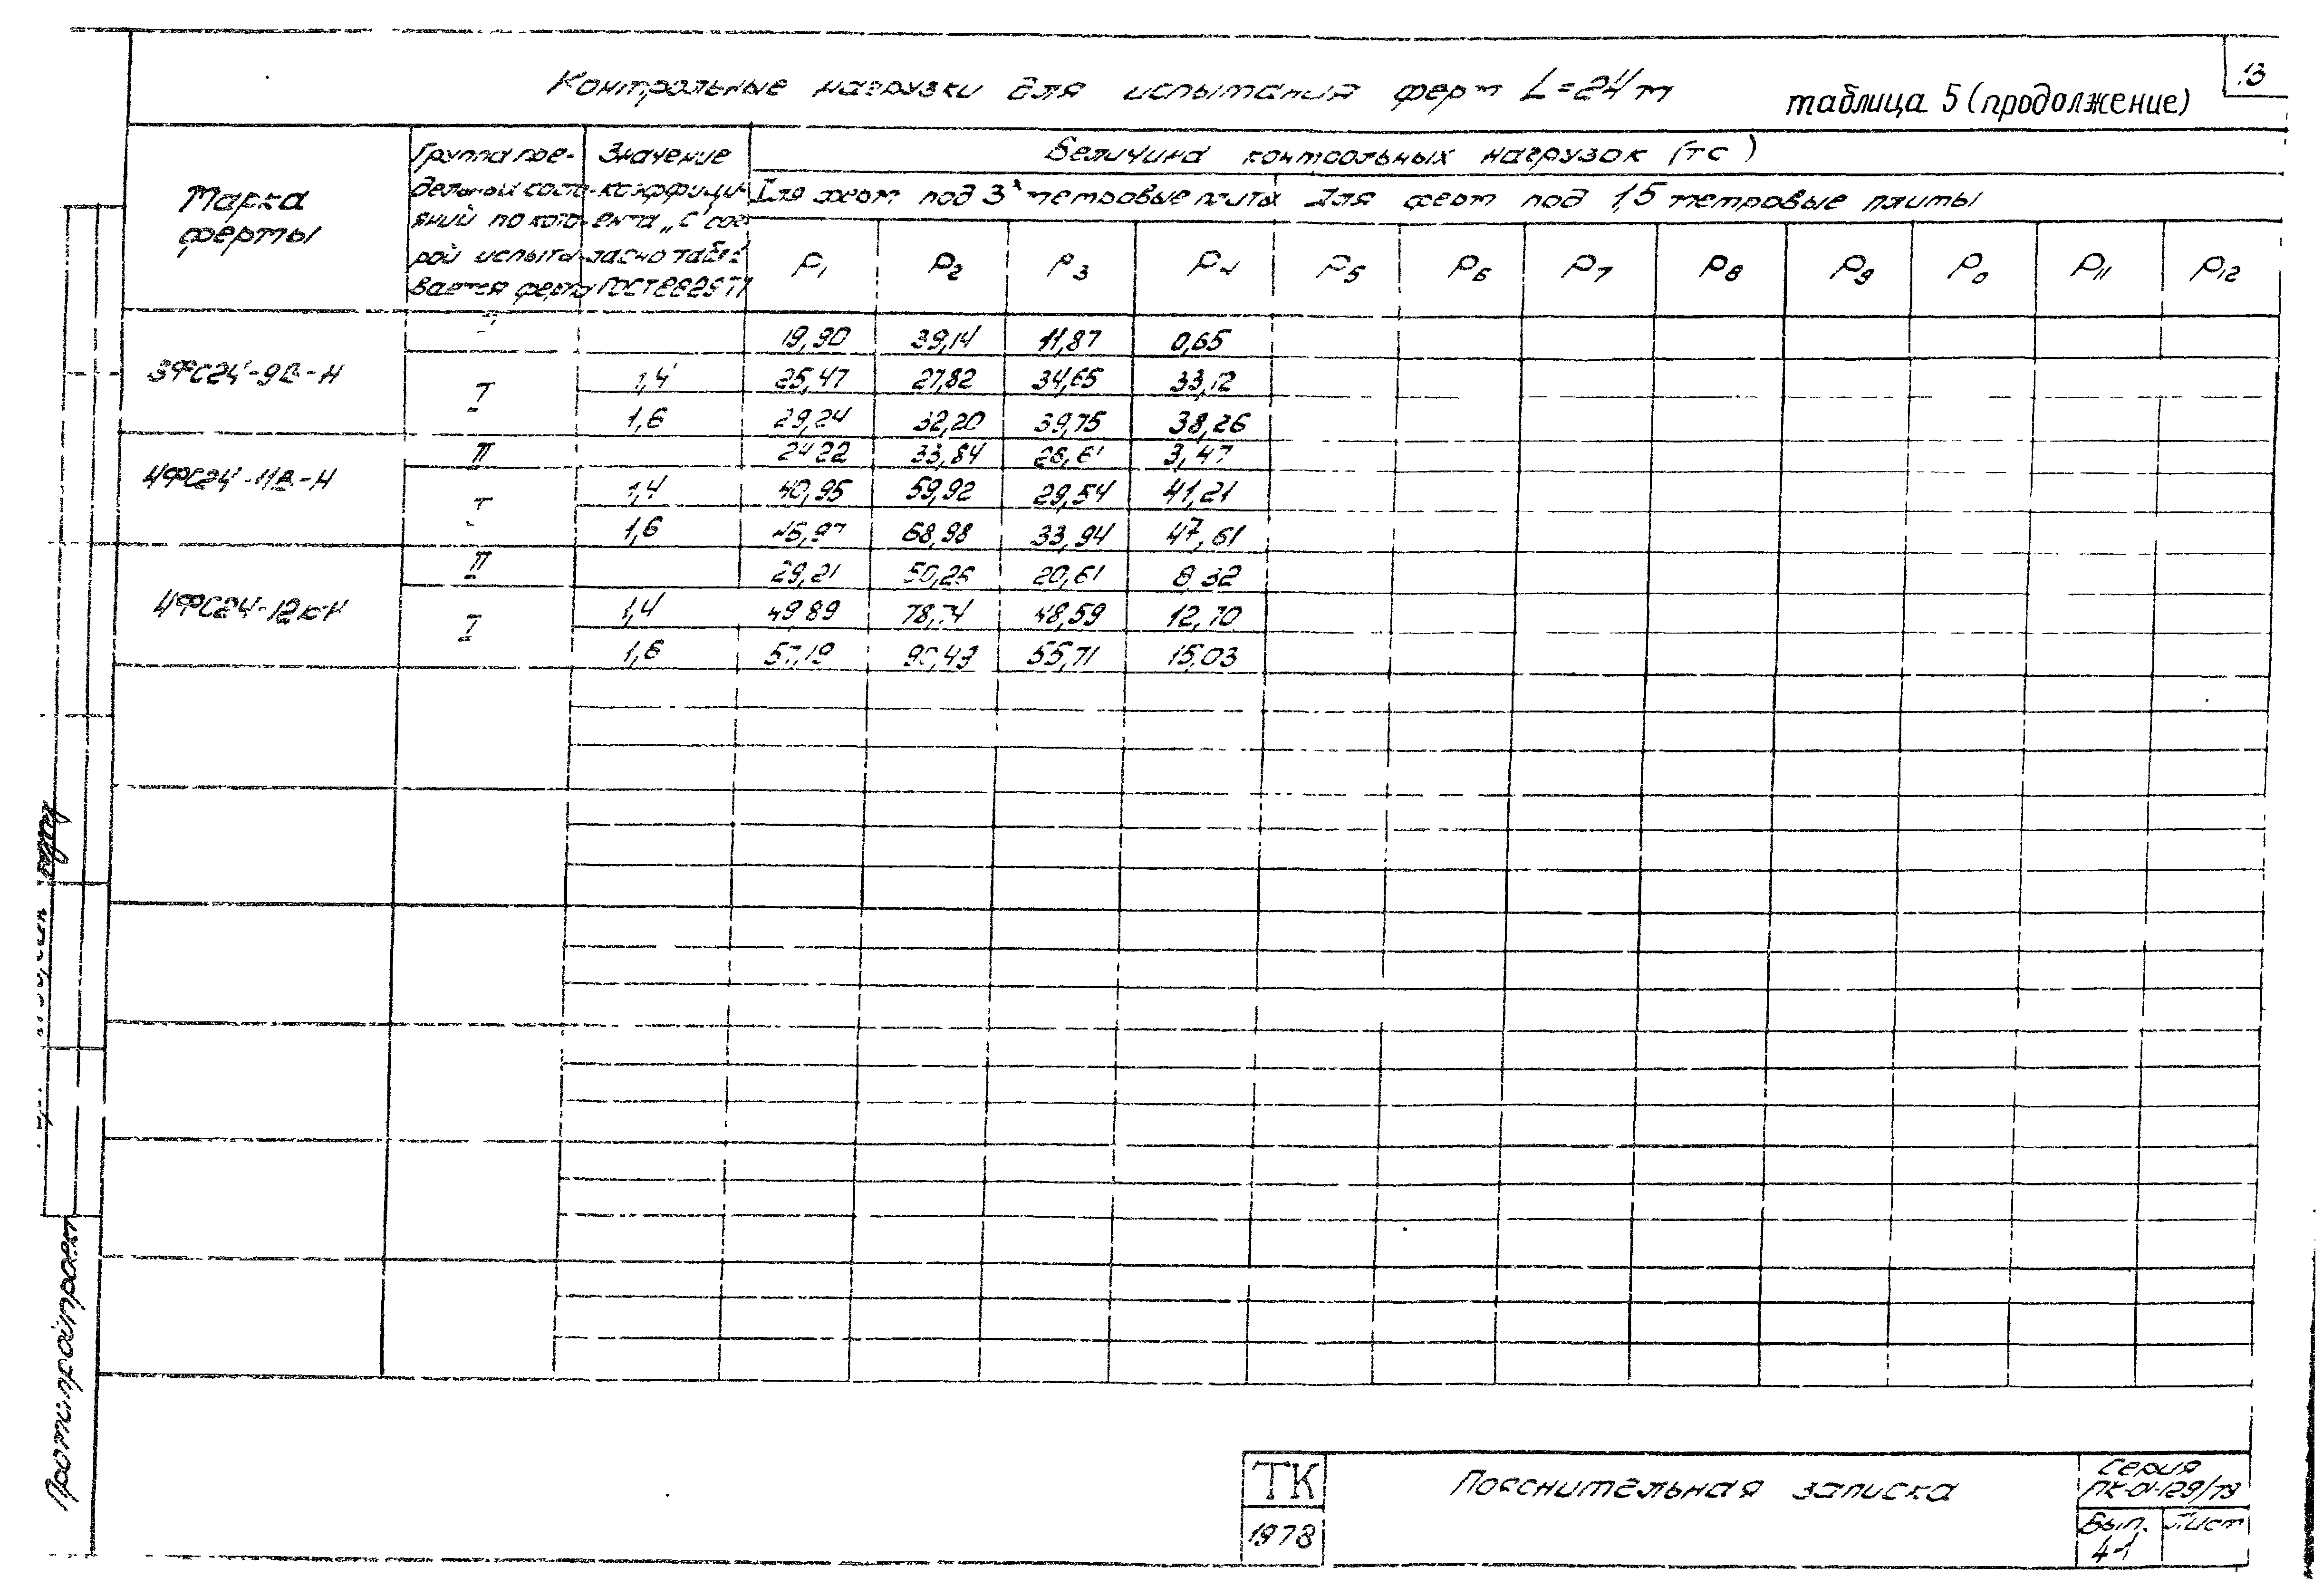 13
Контрольные нагрузки для испытания ферм L=24м
таблица 5 (продолжение)
Марка фермы
Группа пре-
дельных состо-
яний по кото-
рой испыты-
вается ферма
Значение
коэффици-
ента „С" сог-
ласно табл.
ГОСТ 8829-77
Величина контрольных нагрузок (тс)
Для ферм под 3х метровые плиты
Для ферм под 1,5 метровые плиты
P1 P2 P3 P4 P5 P6 P7 P8 P9 P0 P11 P12
3ФС24-9В-Н
19,90 39,14 11,87 0,65
I 1,4 25,47 27,82 34,65 33,12
1,6 29,24 32,20 39,75 38,26
4ФС24-11В-Н
II 24,22 33,84 26,61 3,47
I 1,4 40,95 59,92 29,54 41,21
1,6 68,98 33,94 47,61
4ФС24-12к-Н
II 29,21 50,26 20,61 8,32
I 1,4 49,89 48,59 12,70
1,6 57,19 55,71 15,03
Промстройпроект
ТК
1978
Пояснительная записка
Серия
ПК-01-129/78
Вып.
4-1
Лист